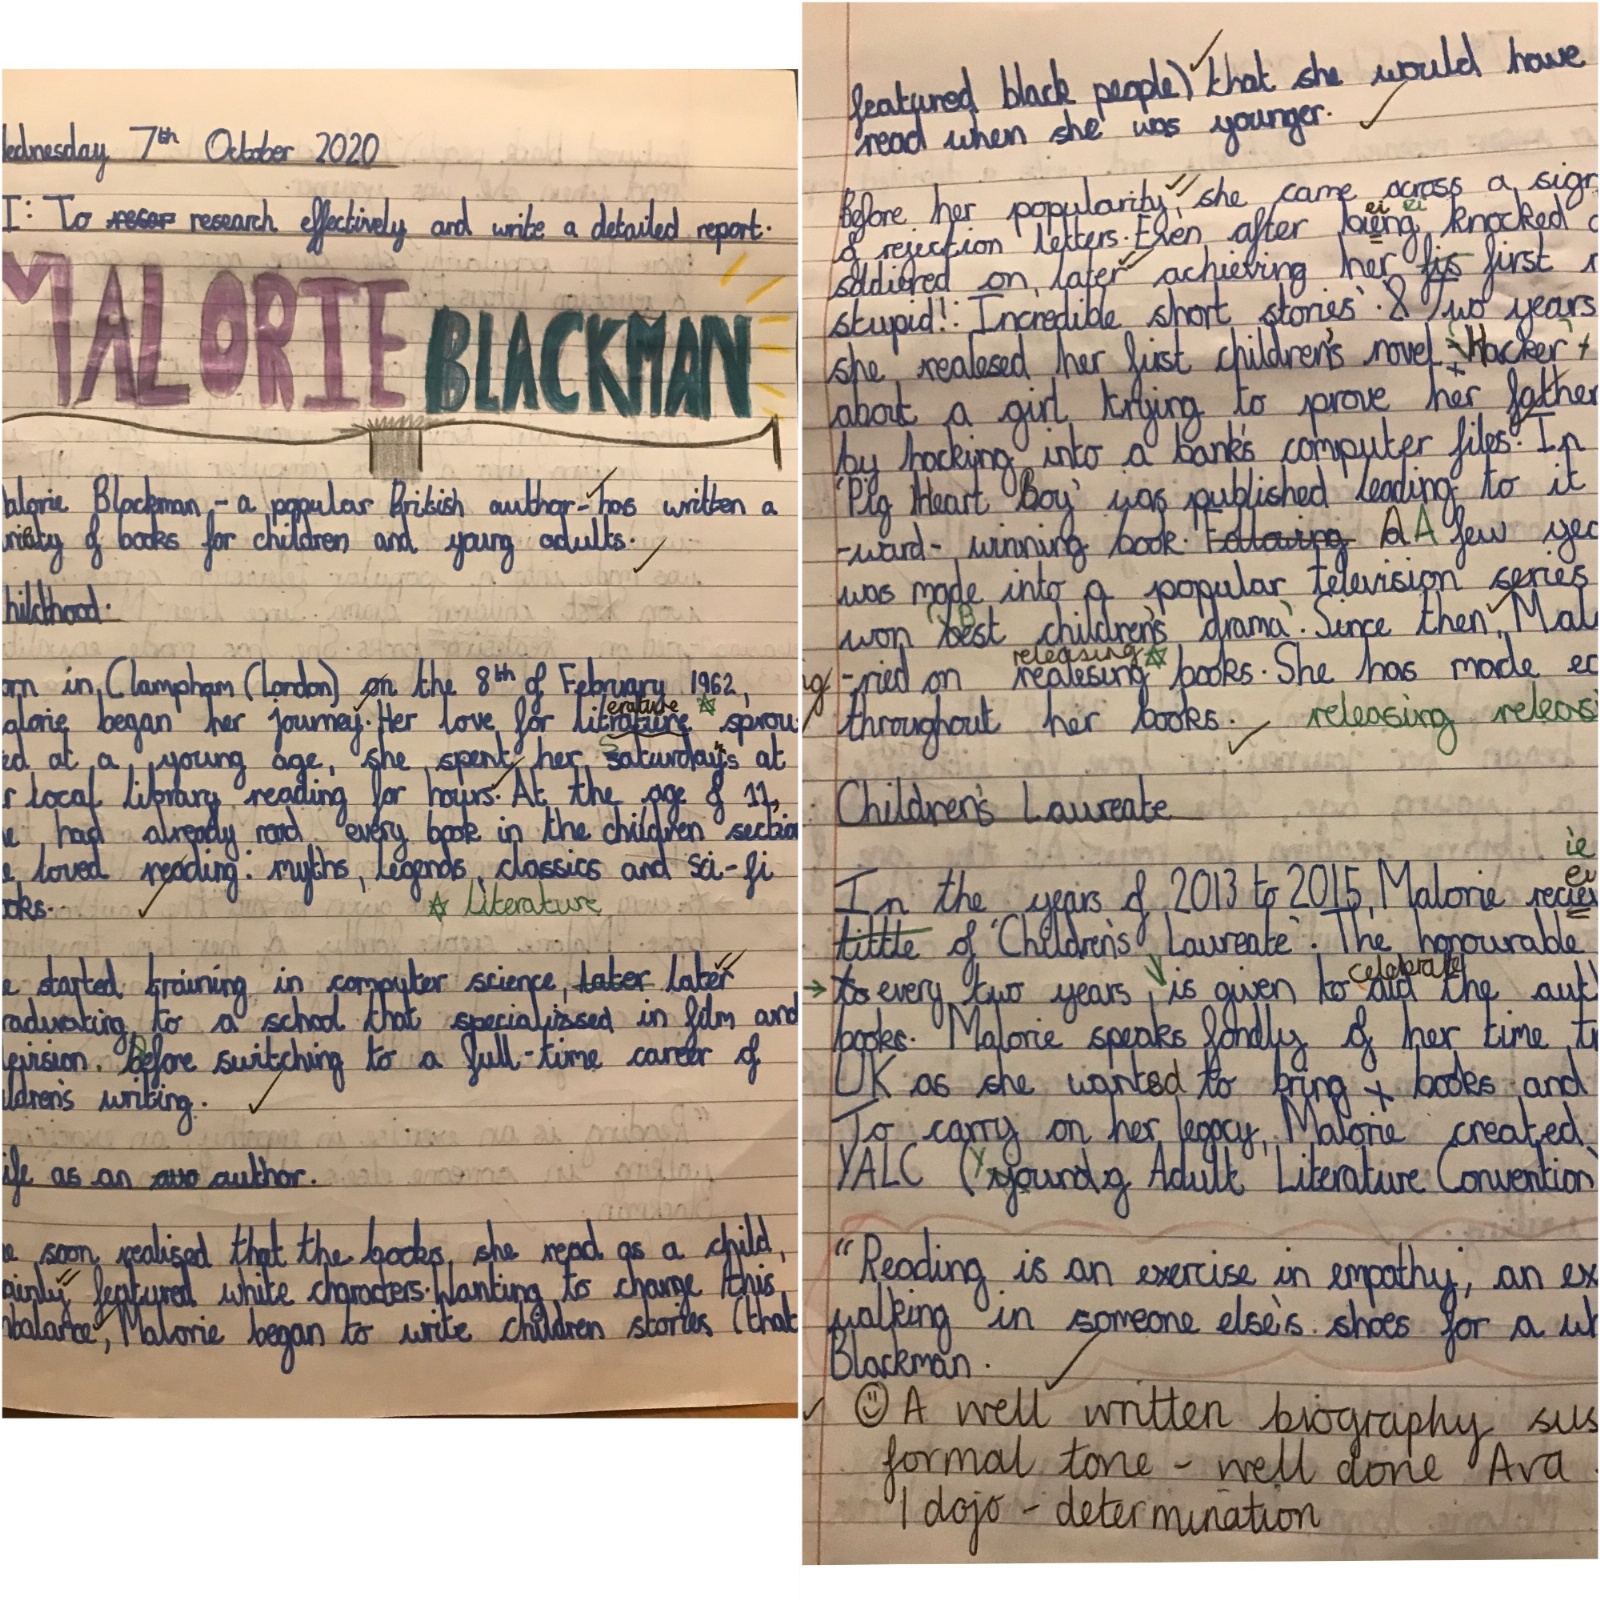 ednesday 7th October 2020
I: To resear research effectively and write a detailed report.
MALORIE BLACKMAN
alorie Blackman - a popular British author - has written a
riety of books for children and young adults.
hildhood.
orn in Clampham (London) on the 8th of February 1962,
erature
alorie began her journey. Her love for litrature sprou
ed at a young age, she spent her Saturday's at
r local library reading for hours. At the age of 11,
e had already read every book in the children section
e loved reading: myths, legends, classics and sci-fi
oks.
Literature
e started training in computer science, later later
raduating to a school that specialissed in film and
evision. Before switching to a full-time career of
ldren's writing.
ife as an auo author.
e soon realised that the books, she read as a child,
ainly featured white characters. Wanting to change this
mbalance, Malorie began to write children stories (that
featured black people) that she would have
read when she was younger.
Before her popularity she came across a sign
ei ei
of rejection letters. Even after bieng knocked
soldiered on, later achieving her fis first
stupid!: Incredible short stories'. & Two years
she realesed her first children's novel 'Hacker'
about a girl trying to prove her father
by hacking into a bank's computer files. In
'Pig Heart Boy' was published leading to it
-ward- winning book. Following A A few yea
was made into a popular television series
won 'Best children's drama'. Since then, Mal
releasing
-ried on realesing books. She has made eq
throughout her books. releasing releasi
Children's Laureate
ie
ei
In the years of 2013 to 2015, Malorie recie
tittle of 'Children's Laureate'. The honourable
celebrate
to every two years, is given to aid the aut
books. Malorie speaks fondly of her time tr
UK as she wanted to bring books and
To carry on her legacy, Malorie created
YALC (Yound,g Adult Literature Convention)
"Reading is an exercise in empathy, an ex
walking in someone else's shoes for a wh
Blackman.
A well written biography sus
formal tone - well done Ava.
1 dojo - determination